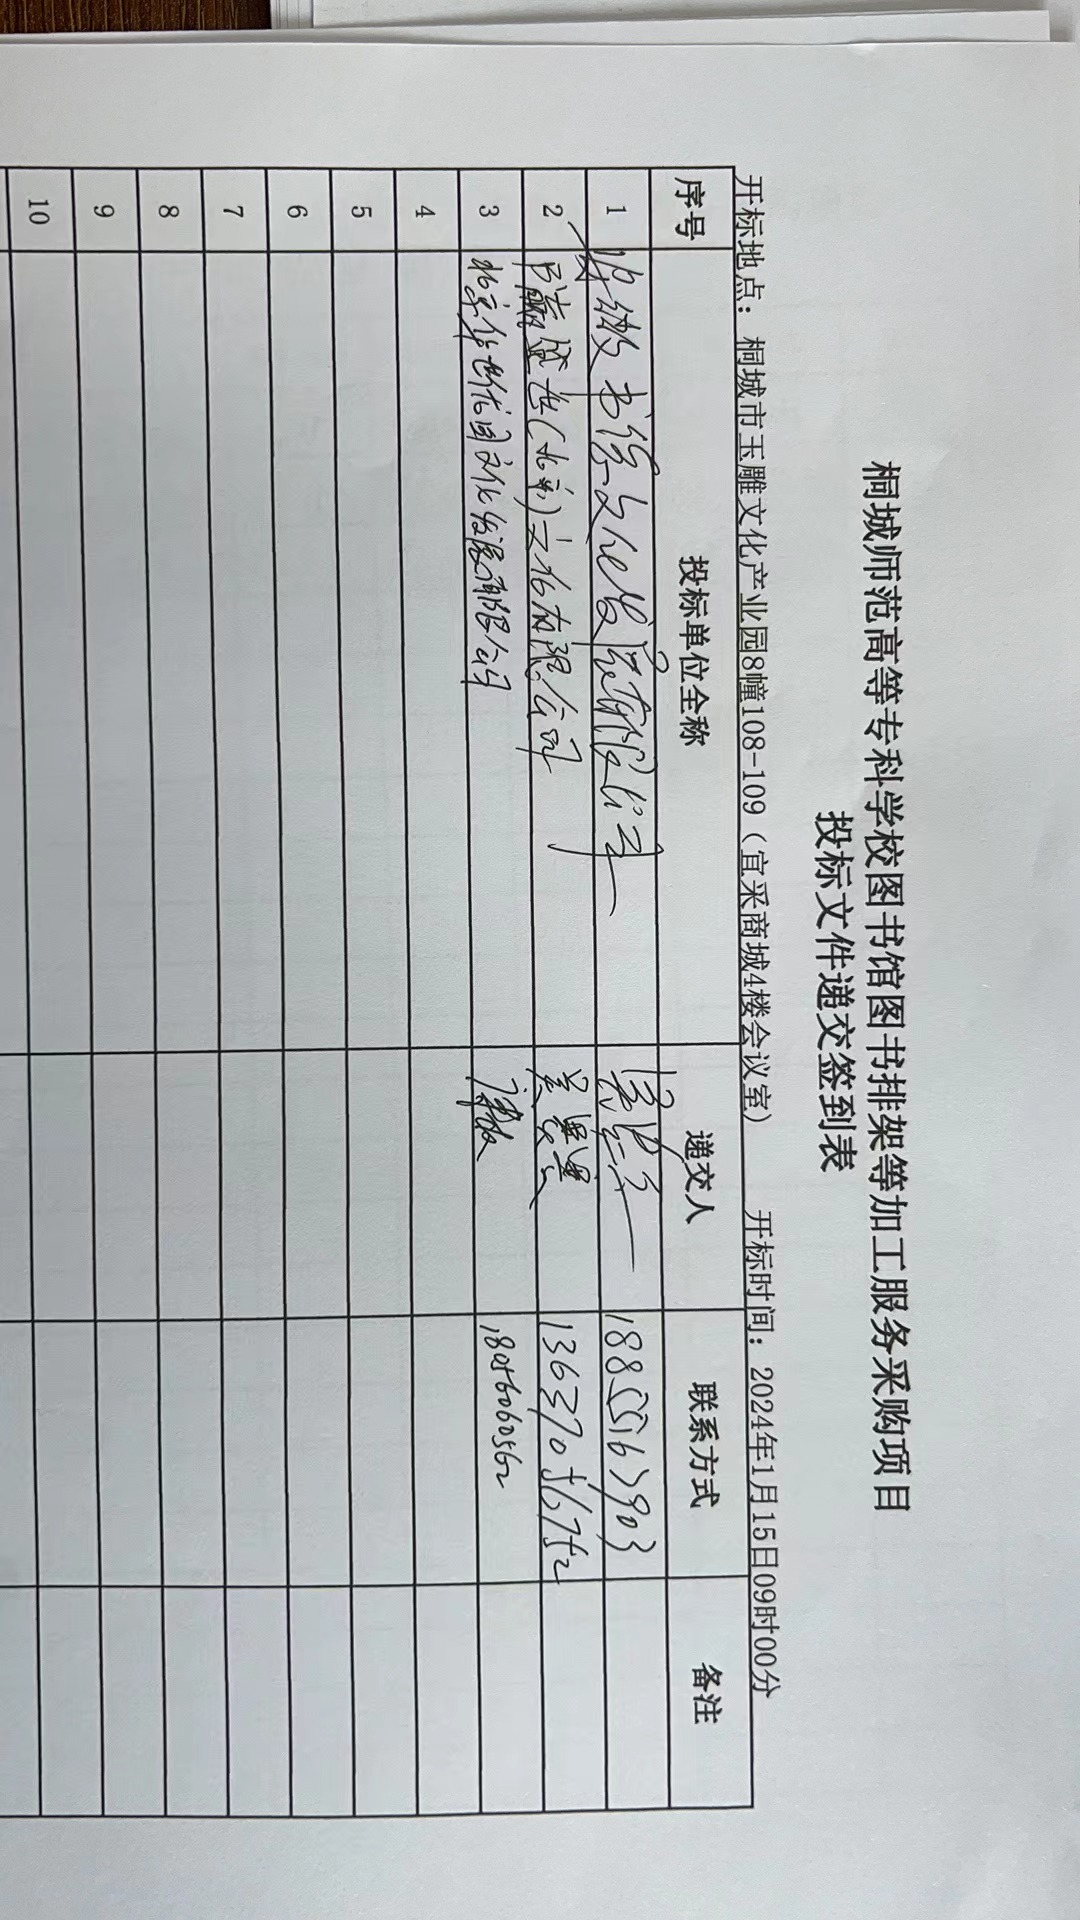 桐城师范高等专科学校图书馆图书排架等加工服务采购项目
投标文件递交签到表
开标地点：桐城市玉雕文化产业园8幢108-109（宜采商城4楼会议室） 开标时间：2024年1月15日09时00分
序号 投标单位全称 递交人 联系方式 备注
1 文化发展有限公司 18855567903
2 盛世（北京）文化有限公司 吴墨 13637085752
3 北京华世优图文化发展有限公司 18056060562
4
5
6
7
8
9
10